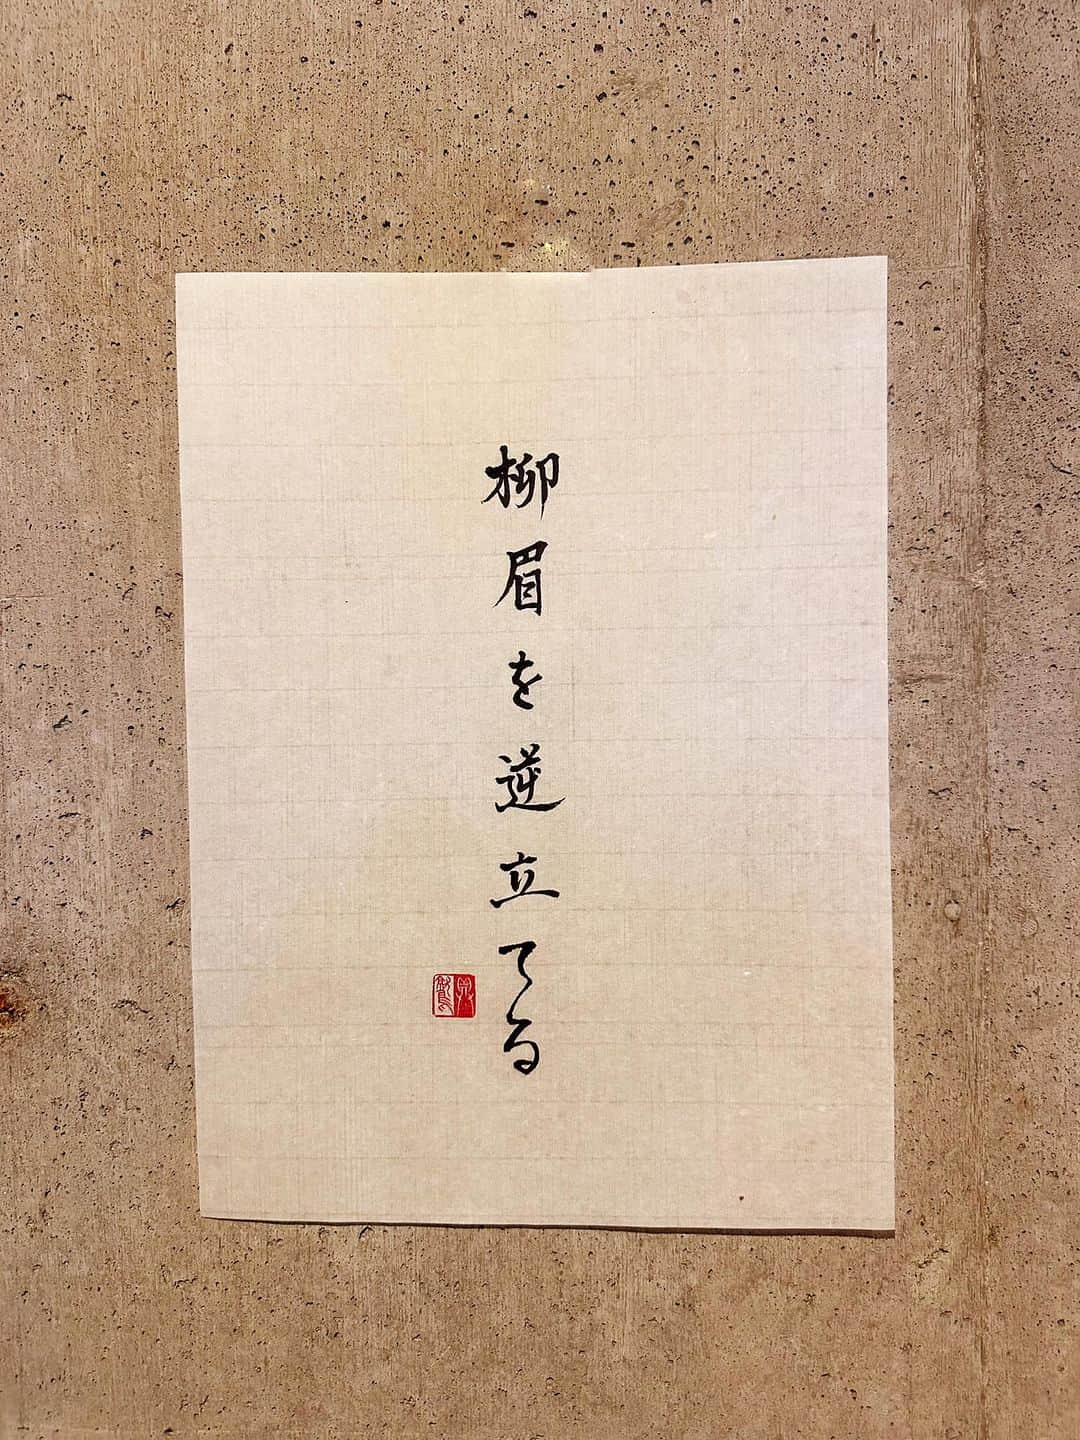 柳眉を逆立てる